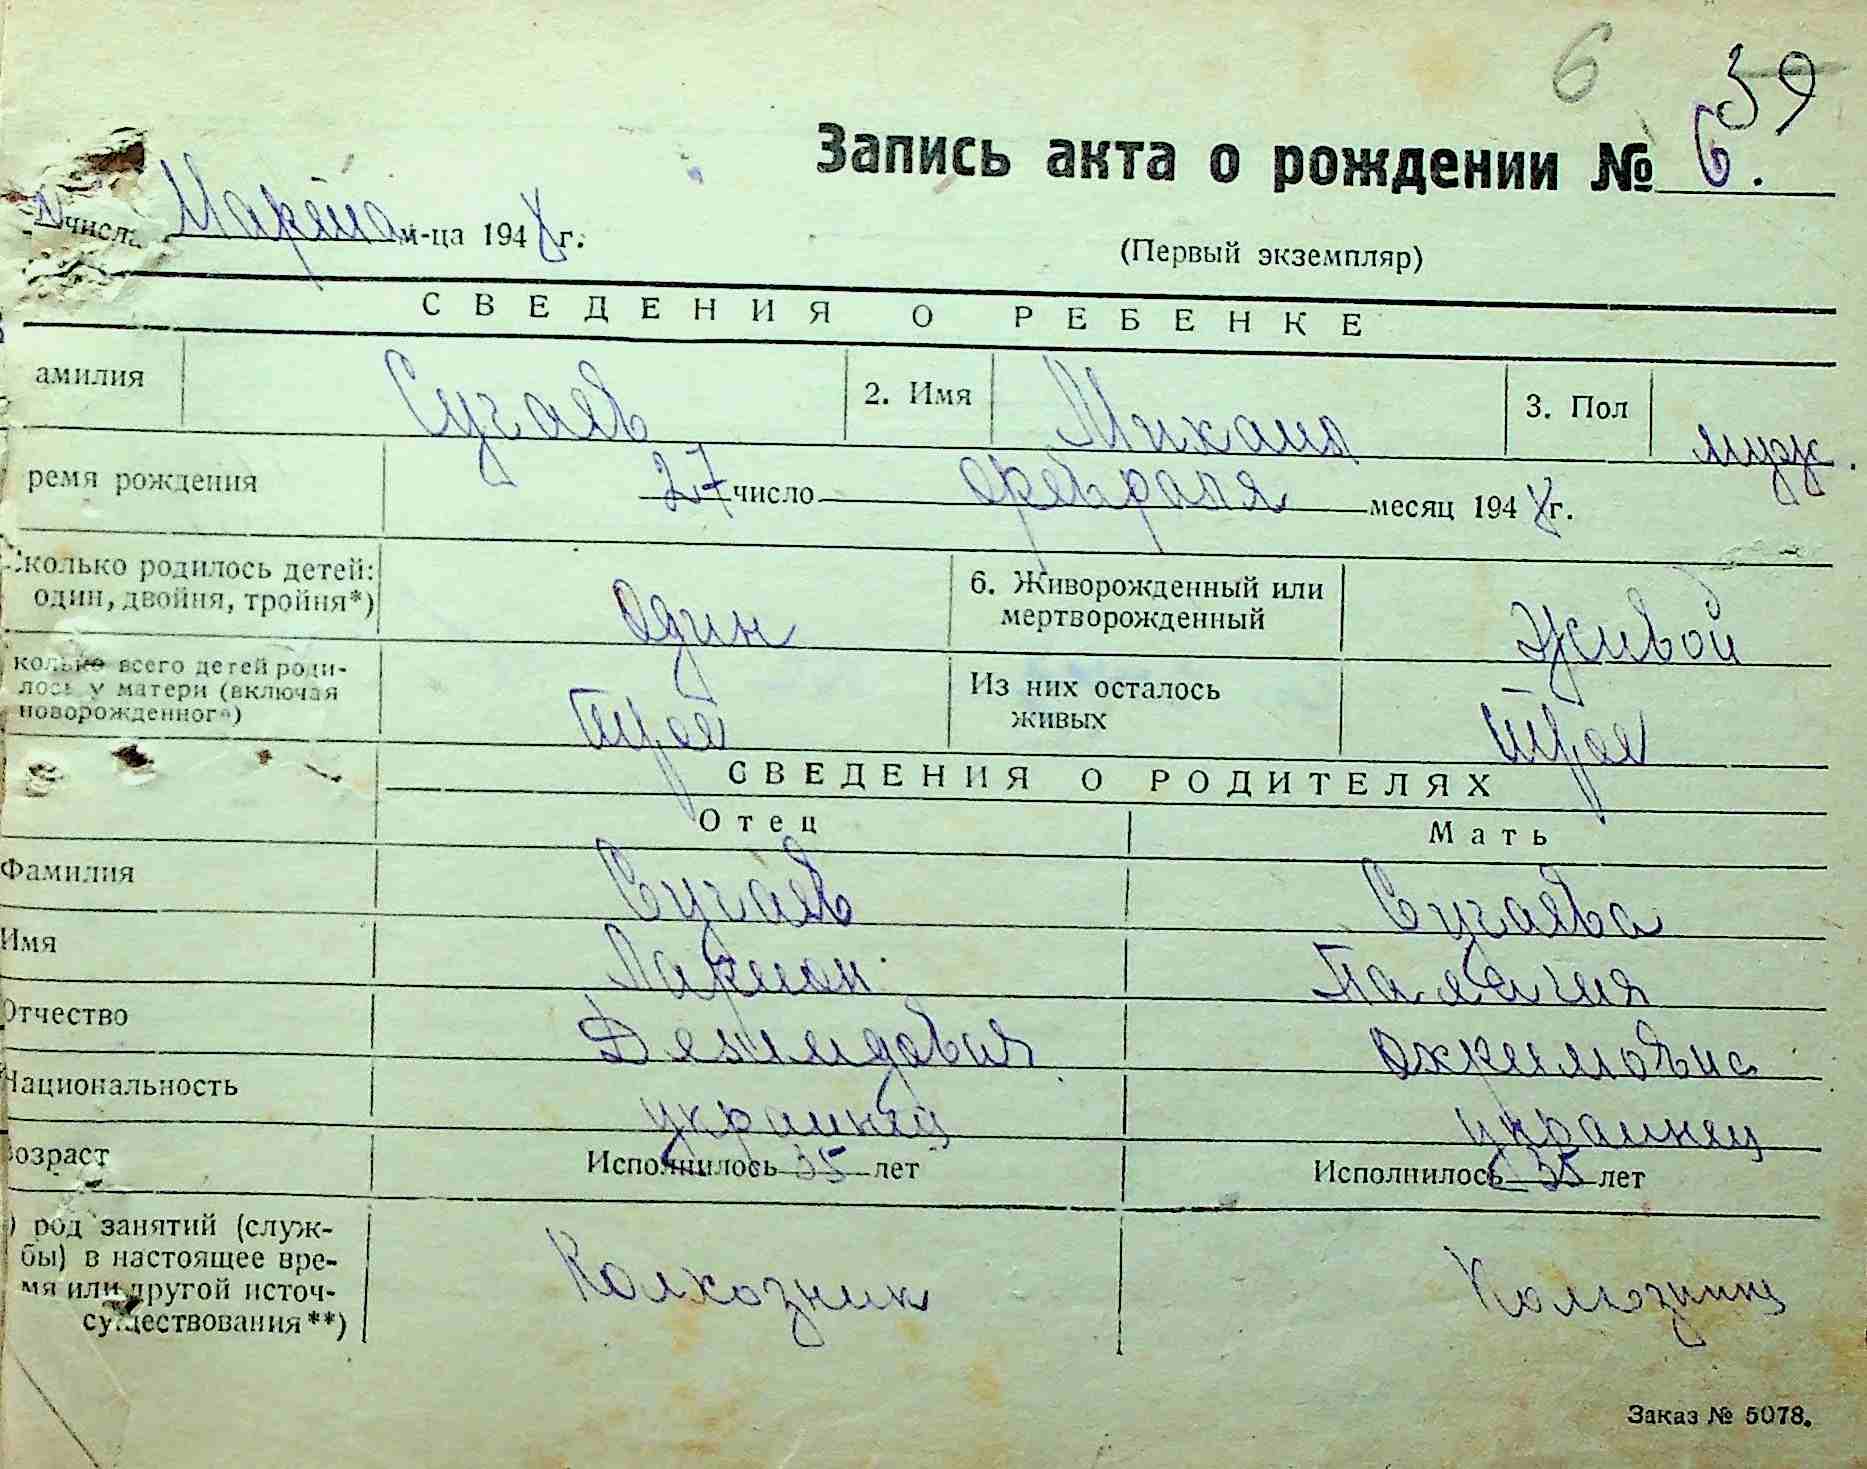 6 39
Запись акта о рождении № 6.
числа Марта м-ца 1948 г.
(Первый экземпляр)
СВЕДЕНИЯ О РЕБЕНКЕ
амилия Сугаев 2. Имя Михаил 3. Пол муж.
ремя рождения 27 число февраля месяц 1948 г.
колько родилось детей: один, двойня, тройня*) Один 6. Живорожденный или мертворожденный Живой
колько всего детей роди-лось у матери (включая новорожденного) трое Из них осталось живых трое
СВЕДЕНИЯ О РОДИТЕЛЯХ
Отец Мать
Фамилия Сугаев Сугаева
Имя Ларион Палагия
Отчество Демидович
Национальность украинец украинец
озраст Исполнилось 35 лет Исполнилось 35 лет
) род занятий (служ-
бы) в настоящее вре-
мя или другой источ-
существования**) Колхозник
Заказ № 5078.